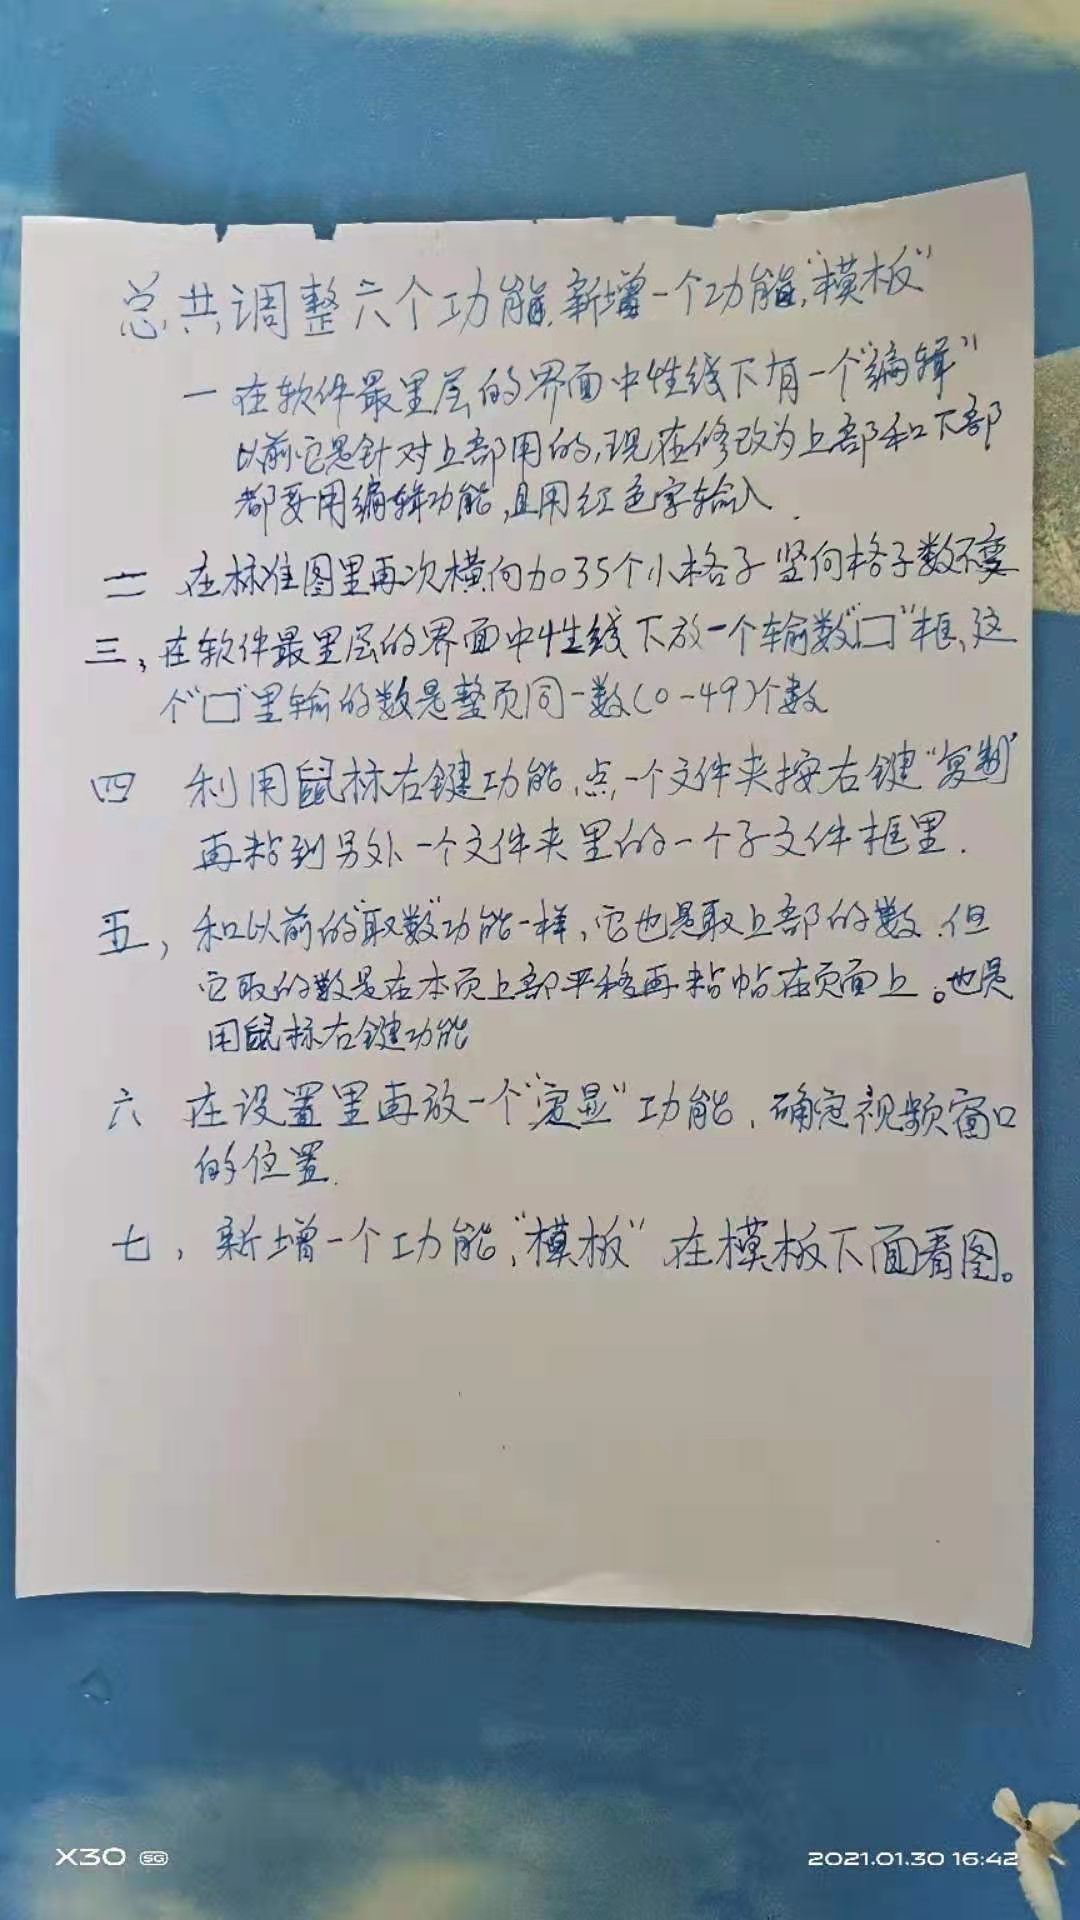 总共调整六个功能.新增一个功能,"模板"
一 在软件最里层的界面中性线下有一个"编辑"
以前它是针对上部用的,现在修改为上部和下部
都要用编辑功能,且用红色字输入.
二 在标准图里再次横向加35个小格子 竖向格子数不变
三、在软件最里层的界面中性线下放一个输数"口"框、这
个"口"里输的数是整页同一数(0-49)个数
四 利用鼠标右键功能,点,一个文件夹按右键"复制"
再粘到另外一个文件夹里的一个子文件框里.
五,和以前的"取数"功能一样,它也是取上部的数.但
它取的数是在本页上部平移再粘帖在页面上。也是
用鼠标右键功能
六 在设置里再放一个"显"功能,确定视频窗口
的位置.
七,新增一个功能,"模板"在模板下面看图。
X30 5G
2021.01.30 16:42